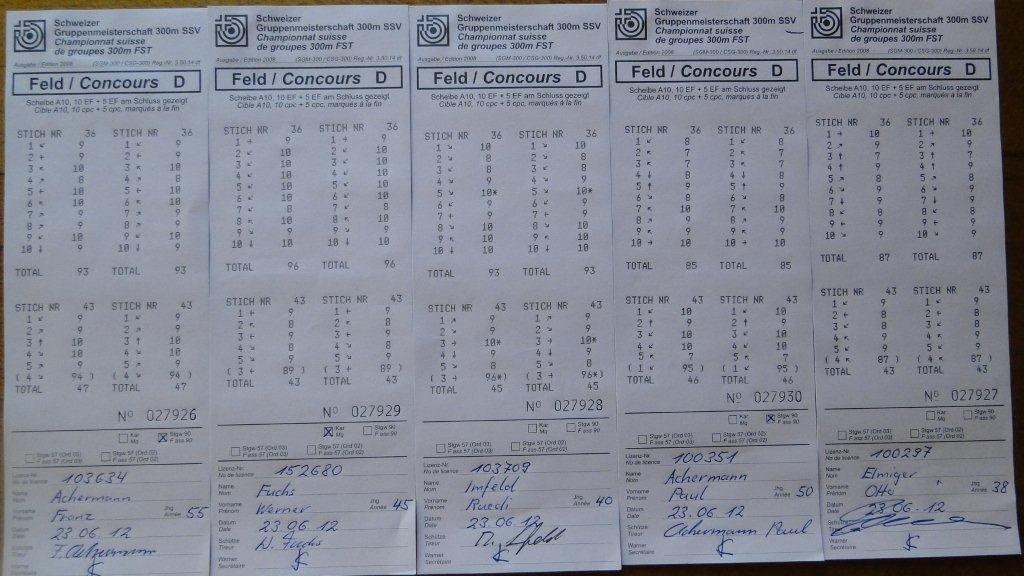 Schweizer
Gruppenmeisterschaft 300m SSV
Championnat suisse
de groupes 300m FST
Ausgabe / Edition 2008 (SGM-300 / CSG-300) Reg.-Nr. 3.50.14 df
Feld / Concours D
Scheibe A10, 10 EF + 5 EF am Schluss gezeigt
Cible A10, 10 cpc + 5 cpc, marqués à la fin
STICH NR 36 STICH NR 36
1 ↙ 9 1 ↙ 9
2 + 9 2 + 9
3 ↖ 10 3 ↖ 10
4 ↗ 8 4 ↗ 8
5 + 10 5 + 10
6 ↖ 10 6 ↖ 10
7 ↗ 9 7 ↗ 9
8 ↗ 9 8 ↗ 9
9 ↖ 10 9 ↖ 10
10 ↓ 9 10 ↓ 9
TOTAL 93 TOTAL 93
STICH NR 43 STICH NR 43
1 ↙ 9 1 ↙ 9
2 ↗ 9 2 ↗ 9
3 ↑ 10 3 ↑ 10
4 ↘ 10 4 ↘ 10
5 ↘ 9 5 ↘ 9
( 4 ↘ 94 ) ( 4 ↘ 94 )
TOTAL 47 TOTAL 47
Nº 027926
Kar
Mq
Stgw 90
F ass 90
Stgw 57 (Ord 03)
F ass 57 (Ord 03)
Stgw 57 (Ord 02)
F ass 57 (Ord 02)
Lizenz-Nr.
No de licence 103634
Name
Nom Achermann
Vorname
Prénom Franz Jhg.
Année 55
Datum
Date 23.06.12
Schütze
Tireur F. Achermann
Warner
Secrétaire
Schweizer
Gruppenmeisterschaft 300m SSV
Championnat suisse
de groupes 300m FST
Ausgabe / Edition 2008 (SGM-300 / CSG-300) Reg.-Nr. 3.50.14 df
Feld / Concours D
Scheibe A10, 10 EF + 5 EF am Schluss gezeigt
Cible A10, 10 cpc + 5 cpc, marqués à la fin
STICH NR 36 STICH NR 36
1 → 9 1 → 9
2 ↙ 10 2 ↙ 10
3 ↙ 10 3 ↙ 10
4 ↙ 10 4 ↙ 10
5 ↙ 10 5 ↙ 10
6 ↙ 10 6 ↙ 10
7 ↙ 8 7 ↙ 8
8 ↖ 10 8 ↖ 10
9 ↙ 9 9 ↙ 9
10 ↓ 10 10 ↓ 10
TOTAL 96 TOTAL 96
STICH NR 43 STICH NR 43
1 + 9 1 + 9
2 ↖ 8 2 ↖ 8
3 + 9 3 + 9
4 ↗ 8 4 ↗ 8
5 ↘ 9 5 ↘ 9
( 3 + 89 ) ( 3 + 89 )
TOTAL 43 TOTAL 43
Nº 027929
Kar
Mq
Stgw 90
F ass 90
Stgw 57 (Ord 03)
F ass 57 (Ord 03)
Stgw 57 (Ord 02)
F ass 57 (Ord 02)
Lizenz-Nr.
No de licence 152680
Name
Nom Fuchs
Vorname
Prénom Werner Jhg.
Année 45
Datum
Date 23.06.12
Schütze
Tireur W. Fuchs
Warner
Secrétaire
Schweizer
Gruppenmeisterschaft 300m SSV
Championnat suisse
de groupes 300m FST
Ausgabe / Edition 2008 (SGM-300 / CSG-300) Reg.-Nr. 3.50.14 df
Feld / Concours D
Scheibe A10, 10 EF + 5 EF am Schluss gezeigt
Cible A10, 10 cpc + 5 cpc, marqués à la fin
STICH NR 36 STICH NR 36
1 ↘ 10 1 ↘ 10
2 ↘ 8 2 ↘ 8
3 ↗ 8 3 ↗ 8
4 → 9 4 → 9
5 ↘ 10* 5 ↘ 10*
6 ↗ 9 6 ↗ 9
7 + 9 7 + 9
8 ↘ 10 8 ↘ 10
9 ↖ 10 9 ↖ 10
10 ↓ 10 10 ↓ 10
TOTAL 93 TOTAL 93
STICH NR 43 STICH NR 43
1 ↗ 9 1 ↗ 9
2 ↘ 9 2 ↘ 9
3 → 10* 3 → 10*
4 ↓ 9 4 ↓ 9
5 ↘ 8 5 ↘ 8
( 3 → 96*) ( 3 → 96*)
TOTAL 45 TOTAL 45
Nº 027928
Kar
Mq
Stgw 90
F ass 90
Stgw 57 (Ord 03)
F ass 57 (Ord 03)
Stgw 57 (Ord 02)
F ass 57 (Ord 02)
Lizenz-Nr.
No de licence 103709
Name
Nom Imfeld
Vorname
Prénom Ruedi Jhg.
Année 40
Datum
Date 23.06.12
Schütze
Tireur
Warner
Secrétaire
Schweizer
Gruppenmeisterschaft 300m SSV
Championnat suisse
de groupes 300m FST
Ausgabe / Edition 2008 (SGM-300 / CSG-300) Reg.-Nr. 3.50.14 df
Feld / Concours D
Scheibe A10, 10 EF + 5 EF am Schluss gezeigt
Cible A10, 10 cpc + 5 cpc, marqués à la fin
STICH NR 36 STICH NR 36
1 ↙ 8 1 ↙ 8
2 ↖ 7 2 ↖ 7
3 ↗ 7 3 ↗ 7
4 ↓ 8 4 ↓ 8
5 ↑ 9 5 ↑ 9
6 ↘ 8 6 ↘ 8
7 ↖ 10 7 ↖ 10
8 ↗ 9 8 ↗ 9
9 ↖ 9 9 ↖ 9
10 → 10 10 → 10
TOTAL 85 TOTAL 85
STICH NR 43 STICH NR 43
1 ↙ 10 1 ↙ 10
2 ↑ 9 2 ↑ 9
3 ↙ 10 3 ↙ 10
4 ↖ 10 4 ↖ 10
5 ↖ 7 5 ↖ 7
( 1 ↙ 95 ) ( 1 ↙ 95 )
TOTAL 46 TOTAL 46
Nº 027930
Kar
Mq
Stgw 90
F ass 90
Stgw 57 (Ord 03)
F ass 57 (Ord 03)
Stgw 57 (Ord 02)
F ass 57 (Ord 02)
Lizenz-Nr.
No de licence 100351
Name
Nom Achermann
Vorname
Prénom Paul Jhg.
Année 50
Datum
Date 23.06.12
Schütze
Tireur Achermann Paul
Warner
Secrétaire
Schweizer
Gruppenmeisterschaft 300m SSV
Championnat suisse
de groupes 300m FST
Ausgabe / Edition 2008 (SGM-300 / CSG-300) Reg.-Nr. 3.50.14 df
Feld / Concours D
Scheibe A10, 10 EF + 5 EF am Schluss gezeigt
Cible A10, 10 cpc + 5 cpc, marqués à la fin
STICH NR 36 STICH NR 36
1 → 10 1 → 10
2 ↗ 9 2 ↗ 9
3 ↑ 7 3 ↑ 7
4 ↑ 9 4 ↑ 9
5 ↗ 8 5 ↗ 8
6 ↘ 9 6 ↘ 9
7 ↓ 9 7 ↓ 9
8 ↙ 8 8 ↙ 8
9 ↖ 9 9 ↖ 9
10 ↘ 9 10 ↘ 9
TOTAL 87 TOTAL 87
STICH NR 43 STICH NR 43
1 ↙ 9 1 ↙ 9
2 ↙ 8 2 ↙ 8
3 ↙ 8 3 ↙ 8
4 ↖ 9 4 ↖ 9
5 ↖ 9 5 ↖ 9
( 4 ↖ 87 ) ( 4 ↖ 87 )
TOTAL 43 TOTAL 43
Nº 027927
Kar
Mq
Stgw 90
F ass 90
Stgw 57 (Ord 03)
F ass 57 (Ord 03)
Stgw 57 (Ord 02)
F ass 57 (Ord 02)
Lizenz-Nr.
No de licence 100297
Name
Nom Elmiger
Vorname
Prénom Otto Jhg.
Année 38
Datum
Date 23.06.12
Schütze
Tireur
Warner
Secrétaire